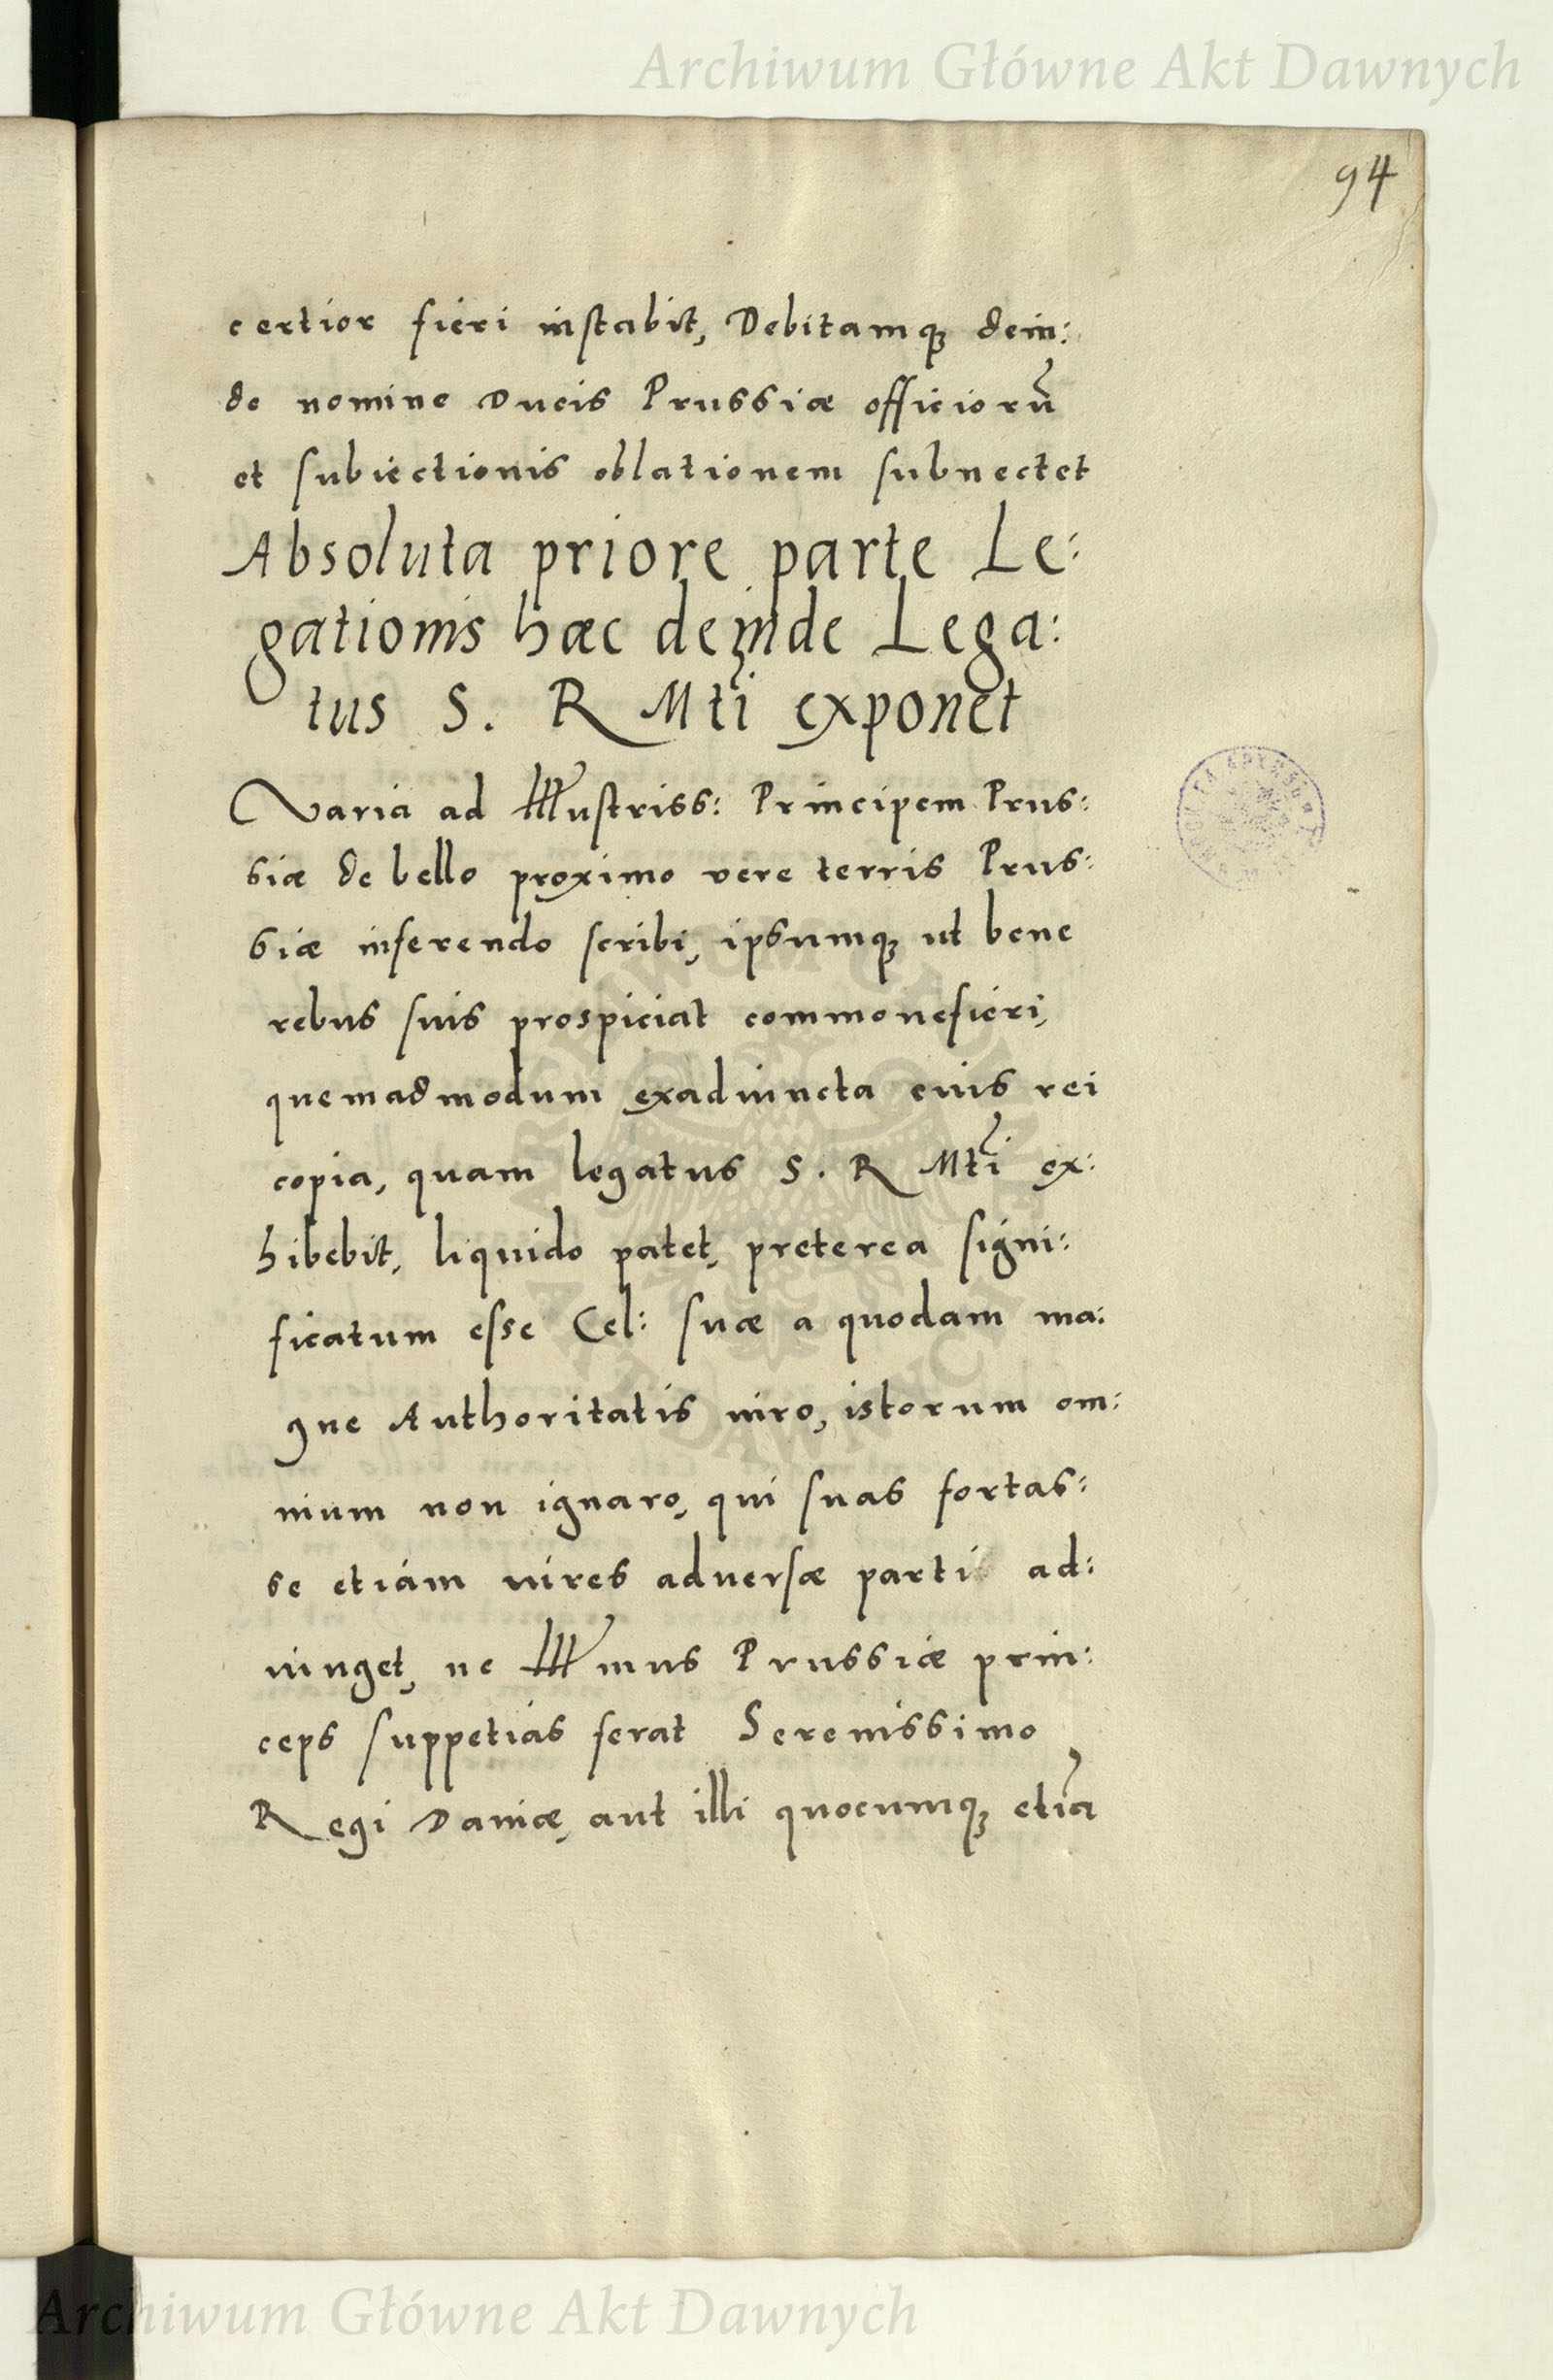 Archiwum Główne Akt Dawnych
94
certior fieri instabit, Debitamq; dein:
de nomine Ducis Prussiæ officiorū
et subiectionis oblationem subnectet
Absoluta priore parte Le:
gationis hæc deinde Lega:
tus S. R Mti exponet
Varia ad Illustriss: Principem Prus:
siæ de bello proximo vere terris Prus:
siæ inferendo scribi, ipsumq; ut bene
rebus suis prospiciat commonefieri,
quemadmodum exadiuncta euis rei
copia, quam legatus S. R Mti ex:
hibebit, liquido patet, preterea signi:
ficatum esse Cel: suæ a quodam ma:
gne Authoritatis uiro, istorum om:
nium non ignaro, qui suas fortas:
se etiam uires aduersæ parti ad:
iunget, ne Illmus Prussiæ prin:
ceps suppetias ferat Serenissimo
Regi Daniæ, aut illi quocumq; etiā
Archiwum Główne Akt Dawnych